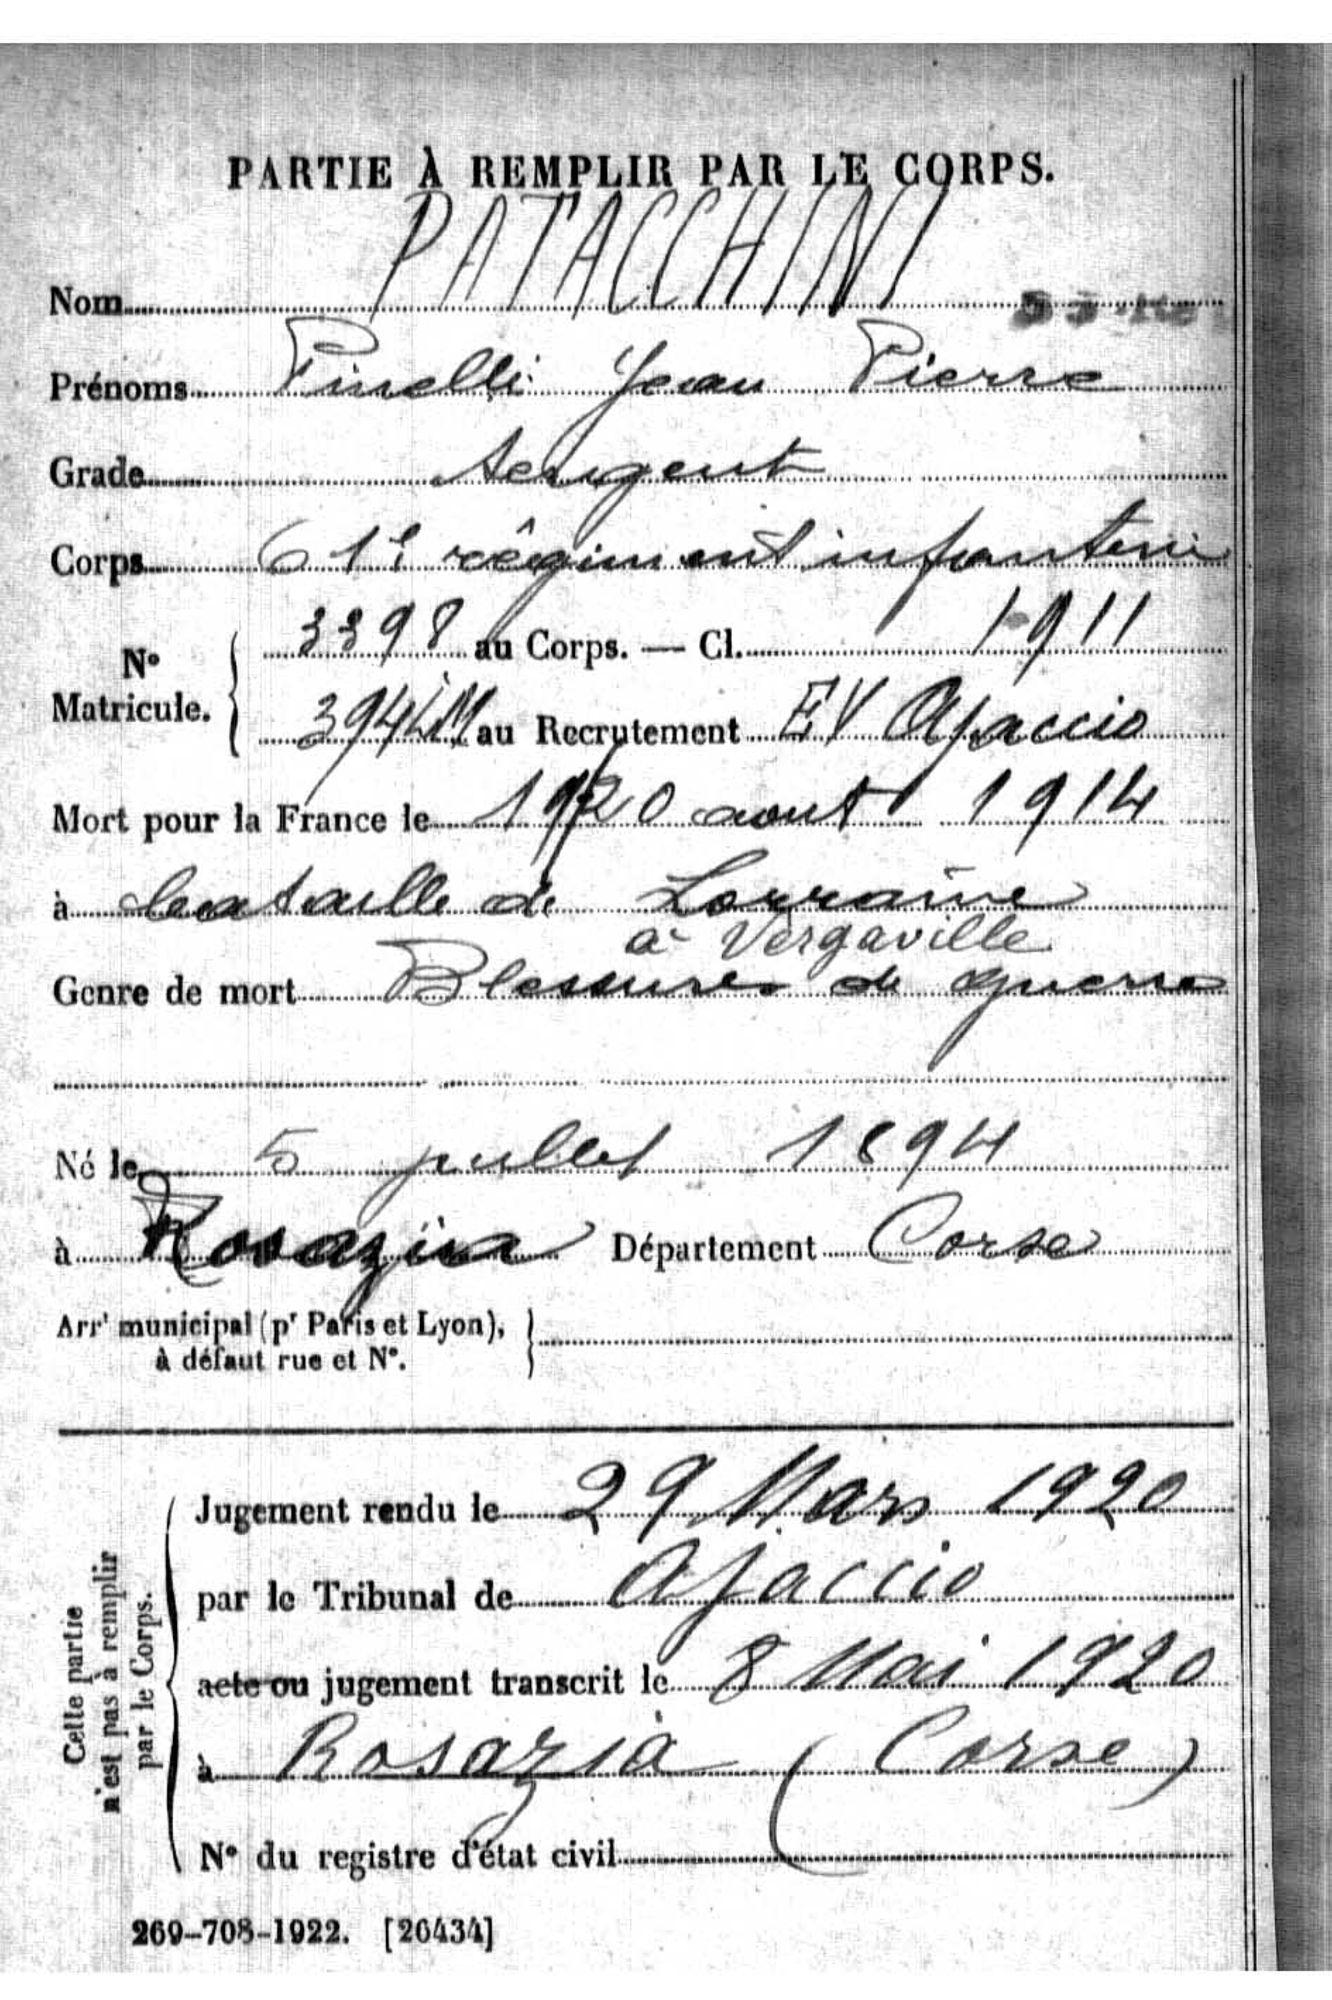 PARTIE À REMPLIR PAR LE CORPS.
Nom PATACCHINI
Prénoms Pinelli Jean Pierre
Grade Sergent
Corps 61e régiment infanterie
N° Matricule. 3398 au Corps. — Cl. 1911
394 LM au Recrutement EV Ajaccio
Mort pour la France le 19/20 aout 1914
à bataille de Lorraine
à Vergaville
Genre de mort Blessures de guerre
Né le 5 juillet 1894
à Rosazia Département Corse
Arrt municipal (pr Paris et Lyon),
à défaut rue et N°.
Cette partie
n'est pas à remplir
par le Corps.
Jugement rendu le 29 Mars 1920
par le Tribunal de Ajaccio
acte ou jugement transcrit le 8 Mai 1920
à Rosazia (Corse)
N° du registre d'état civil
269-708-1922. [26434]